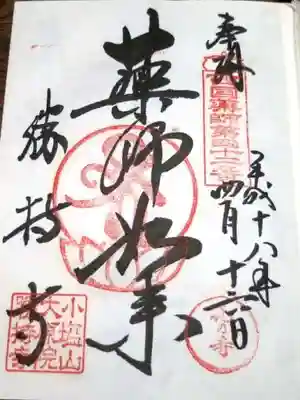 奉拝
西国薬師第四十二番
平成十八年四月十六日
薬師如来
勝持寺
小塩山
大原院
勝持寺